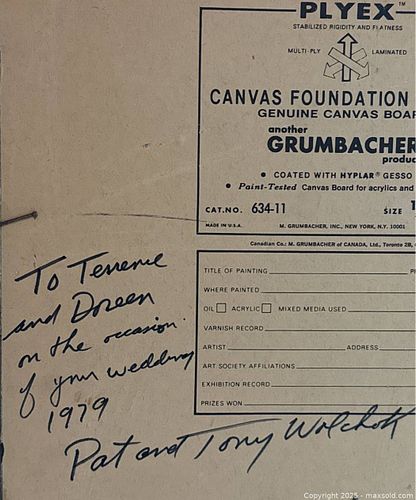 PLYEX™
STABILIZED RIGIDITY AND FLATNESS
MULTI-PLY LAMINATED
CANVAS FOUNDATION
GENUINE CANVAS BOAR
another
GRUMBACHER
produc
• COATED WITH HYPLAR® GESSO
• Paint-Tested Canvas Board for acrylics and
CAT.NO. 634-11 SIZE 1
MADE IN U.S.A. M. GRUMBACHER, INC., NEW YORK, N.Y. 10001
Canadian Co.: M. GRUMBACHER of CANADA, Ltd., Toronto 2B,
TITLE OF PAINTING
WHERE PAINTED
OIL ACRYLIC MIXED MEDIA USED
VARNISH RECORD
ARTIST ADDRESS
ART SOCIETY AFFILIATIONS
EXHIBITION RECORD
PRIZES WON
To Terrence
and Doreen
on the occasion
of your wedding
1979
Pat and Tony Wolchok
Copyright 2025 - maxsold.com